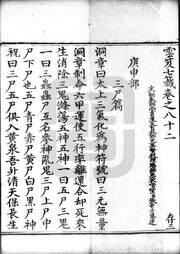 雲笈七籤卷之八十二
存三
庚申部
三尸篇
洞章曰太上三氣化為神符號曰三元無量
洞章制命六甲運使五行率離還合却死來
生消除三鬼滌蕩五神五神一曰五尸三鬼
一曰三蟲蟲尸互名參神亂鬼三尸上尸中
尸下尸也五尸青尸赤尸黃尸白尸黑尸神
祝曰三尸五尸俱入黃泉吾升清天保長生